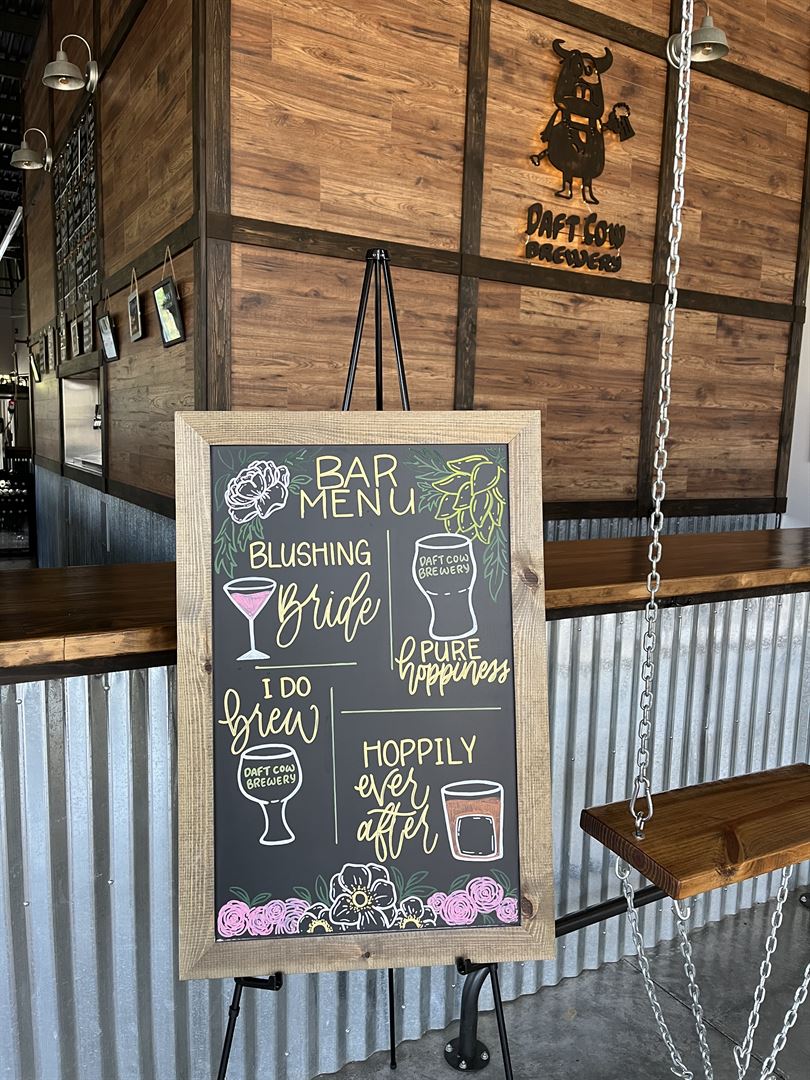 DAFT COW
BREWERY
BAR
MENU
BLUSHING
Bride
DAFT COW
BREWERY
PURE
hoppiness
I DO
brew
DAFT COW
BREWERY
HOPPILY
ever
after